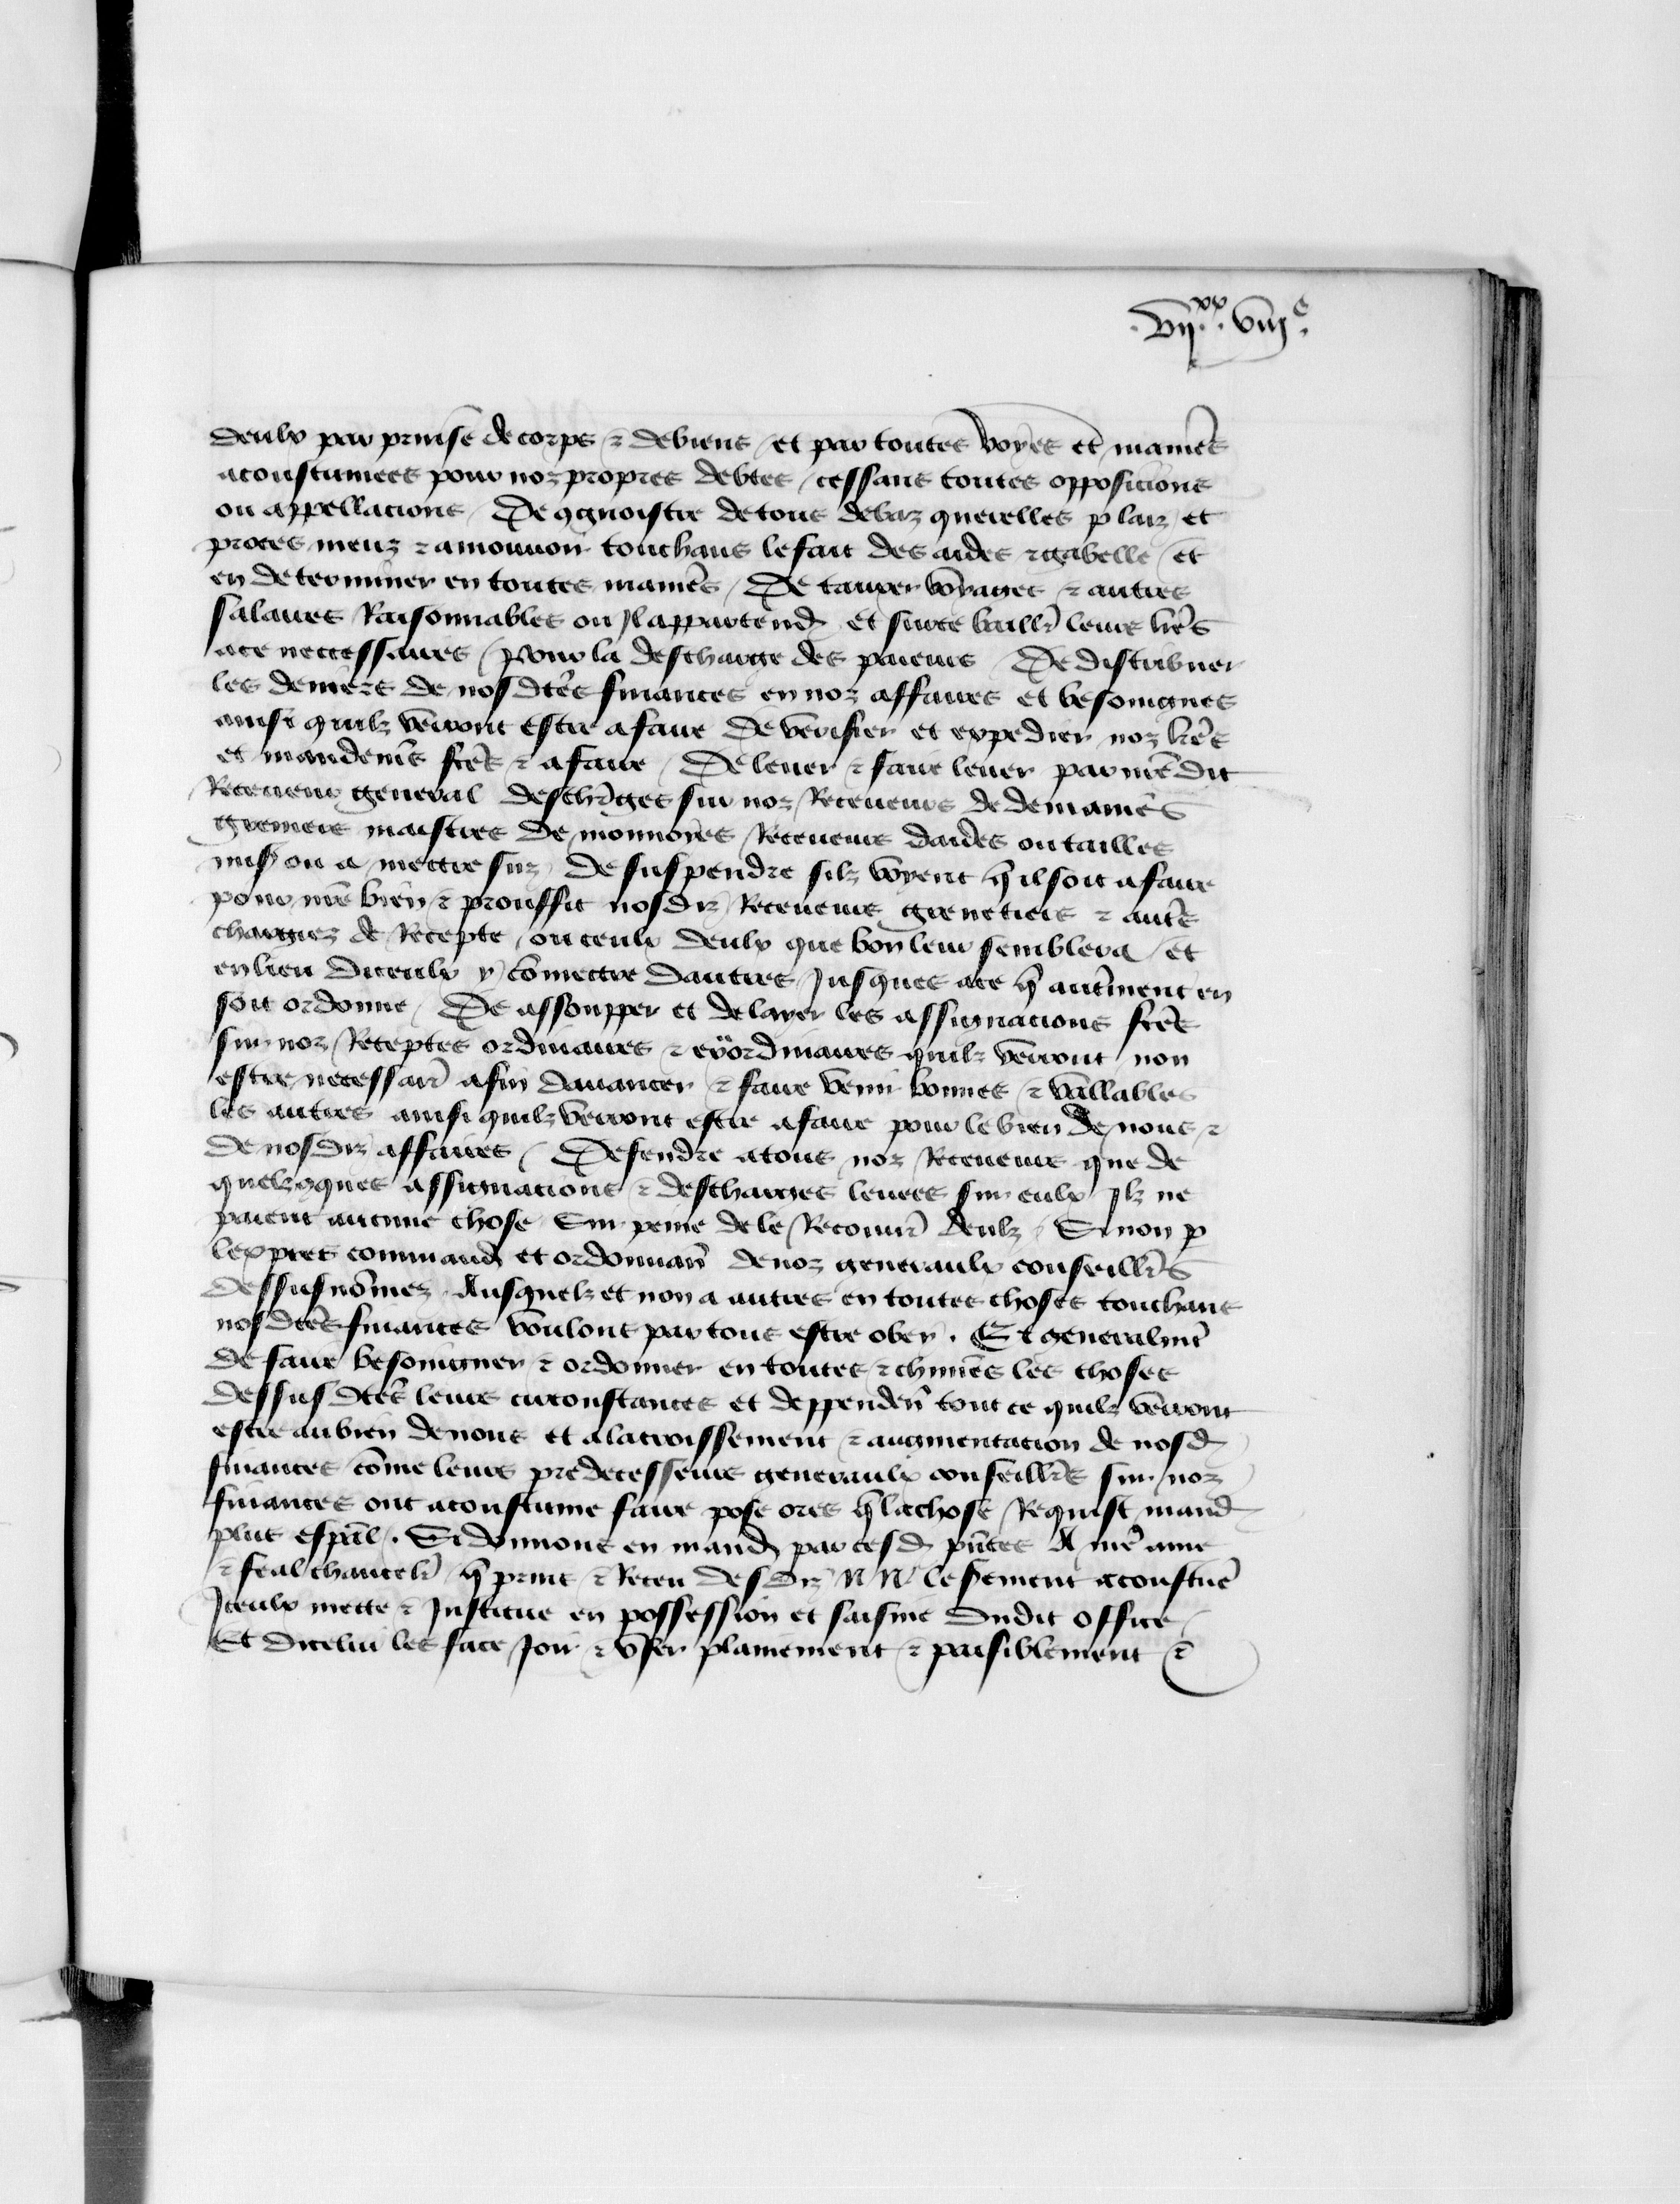 .vii.xx.viiie.
deulx par prinse de corps ⁊ de biens et par toutes voyes et manieres
acoustumees pour noz propres debtes cessans toutes opposicions
ou appellacions De ꝯgnoistre de tous debaz querelles plaiz et
proces meuz ⁊ a mouuoir touchans le fait des aides ⁊ gabelle et
en determiner en toutes manies De tauxer voyages ⁊ autres
salaires Raisonnables ou Il appartend et sur ce baillr leurs lrēs
a ce neccessaires pour la descharge des paieurs De distribuer
les deniers de nosdtēs finances en noz affaires et besoingnes
ainsi quilz verront estre a faire De verifier et expedier noz lrēs
et mandemēs fctēs ⁊ a faire De leuer ⁊ faire leuer par nrē dit
Receueur general deschrges sur noz Receueurs de demaines
greniers maistres de monnoyes Receueurs daides ou tailles
mis ou a mettre suz De suspendre silz voyent q̄ il soit a faire
pour nrē bien ⁊ prouffit nosdiz Receueurs grenetiers ⁊ autrēs
chargez de Recepte ou ceulx deulx que bon leur semblera et
en lieu diceulx y cōmettre dautres Jusques a ce q̄ autrment en
soit ordonne De assoupper et delayer les assignacions fctēs
sur noz Receptes ordinaires ⁊ exordinaires quilz verront non
estre necessair afin dauancer ⁊ faire venir bonnes ⁊ vaillables
les autres ainsi quilz verront estre a faire pour le bien de nous ⁊
de nosdiz affaires Defendre a tous noz Receueurs que de
quelzꝯques assignacions ⁊ descharges leuees sur eulx Ilz ne
paient aucune chose Sur peine de le Recouur deulz Sinon ꝑ
lexpres command et ordonnan de noz generaulx conseillrs
dessus nōmez Ausquelz et non a autres en toutes choses touchans
nosdtēs finances voulons par tous estre obey. Et generalmt
de faire besoingner ⁊ ordonner en toutes ⁊ chunēs les choses
dessusdtēs leurs circonstances et deppenden tout ce quilz verront
estre au bien de nous et a lacroissement ⁊ augmentacion de nosd
finances cōme leurs predecesseurs generaulx conseillrs sur noz
finances ont acoustume faire pose ores q̄ la chose Requist mand
plus espāl. Si donnons en mand par cesd pntes A nrē ame
⁊ feal chancelr q̄ prins ⁊ Receu desdiz N N le sement acoustue
Iceulx mette ⁊ Institue en possession et saisine dudit office
Et dicelui les face Joir ⁊ vser plainement ⁊ paisiblement ⁊c